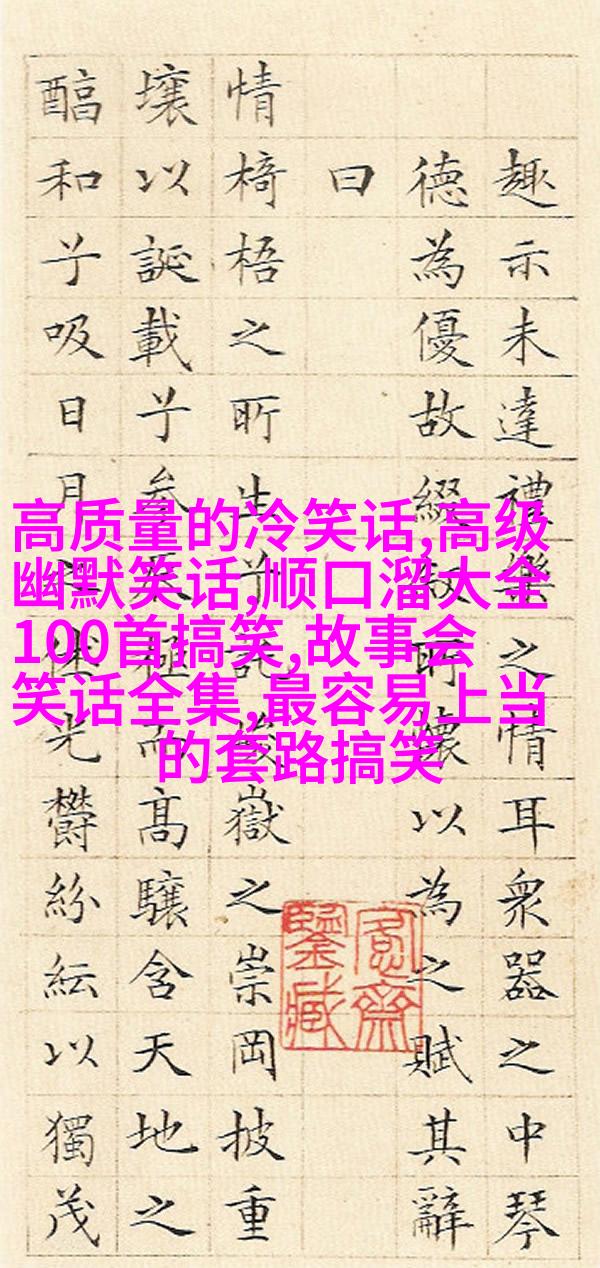 趣示未達禮樂之情耳衆器之中琴
德為優故綴叙所懷以為之賦其辭
曰
情椅梧之所生兮託峻嶽之崇岡披重
壤以誕載兮參辰極而高驤含天地之
醕和兮吸日月之休光鬱紛紜以獨茂
愙齋
鑒藏
高质量的冷笑话,高级
幽默笑话,顺口溜大全
100首搞笑,故事会
笑话全集,最容易上当
的套路搞笑